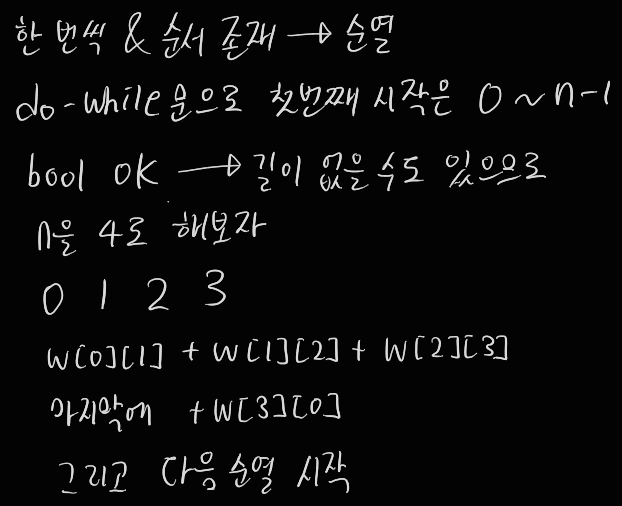 한 번씩 & 순서 존재 → 순열
do-while문으로 첫번째 시작은 0 ~ n-1
bool ok → 길이 없을 수도 있으므로
n을 4로 해보자
0 1 2 3
W[0][1] + W[1][2] + W[2][3]
마지막에 + W[3][0]
그리고 다음 순열 시작